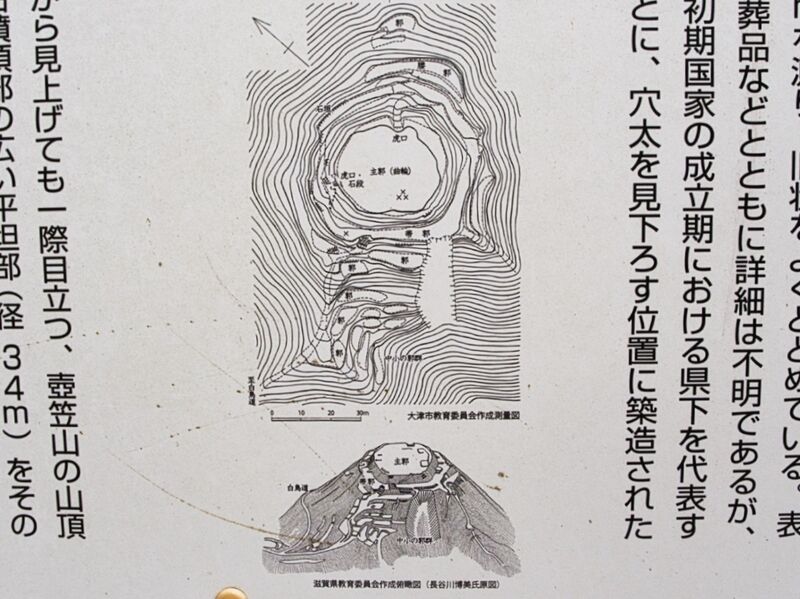 葬品などとともに詳細は不明であるが、
初期国家の成立期における県下を代表す
とに、穴太を見下ろす位置に築造された
郭
腰郭
石垣
虎口
主郭(曲輪)
虎口・
石段
帯郭
郭
郭
郭
中小の郭群
至白鳥道
0 10 20 30m
大津市教育委員会作成測量図
主郭
帯郭
白鳥道
中小の郭群
滋賀県教育委員会作成俯瞰図(長谷川博美氏原図)
から見上げても一際目立つ、壺笠山の山頂
古墳頂部の広い平坦部(径34m)をその